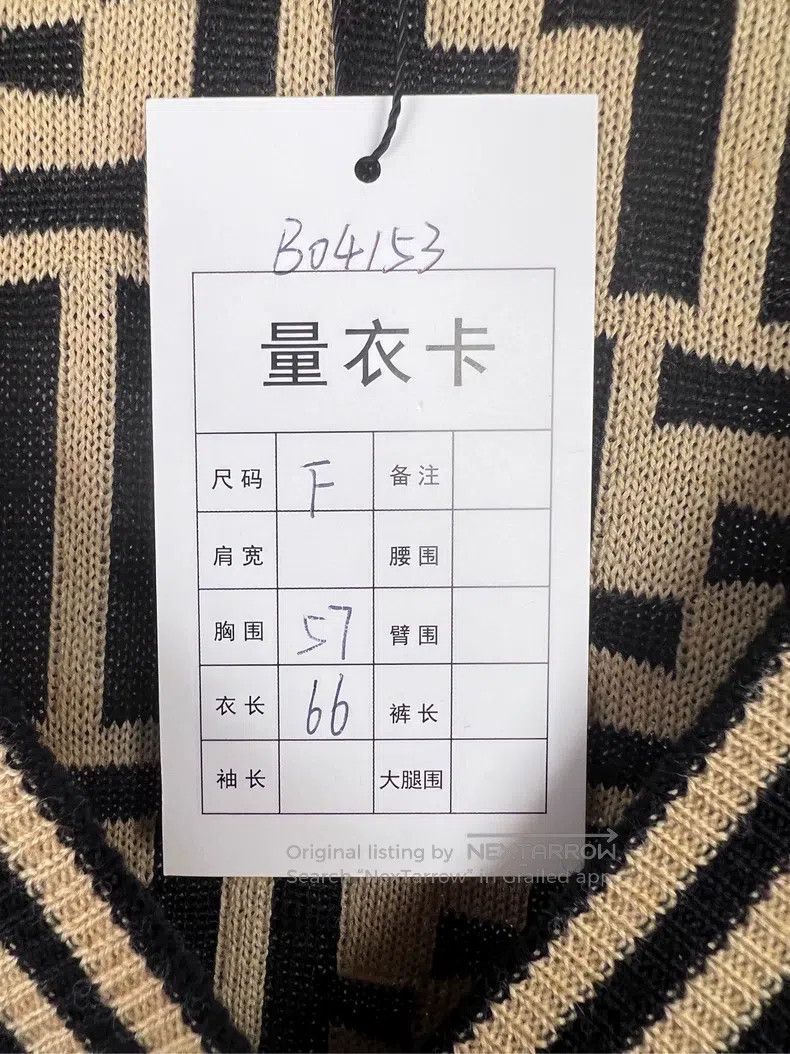 B04153
量衣卡
尺码 F 备注
肩宽 腰围
胸围 57 臂围
衣长 66 裤长
袖长 大腿围
Original listing by NEXTARROW
Search "NexTarrow" in Grailed app